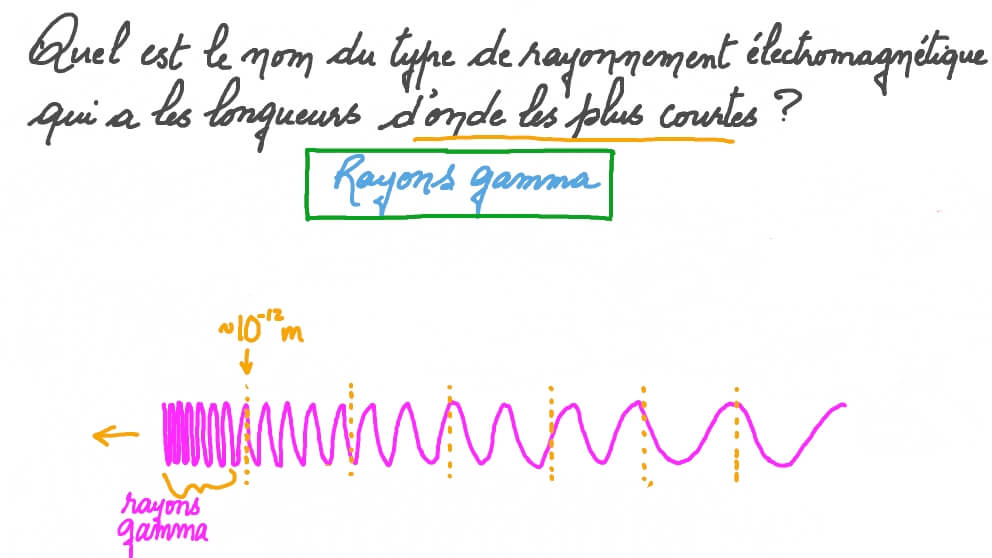 Quel est le nom du type de rayonnement électromagnétique
qui a les longueurs d'onde les plus courtes ?
Rayons gamma
~10⁻¹² m
rayons
gamma